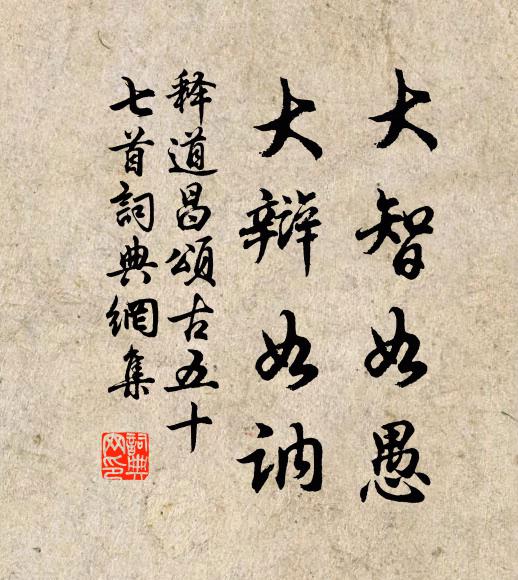 大智如愚
大辯如訥
释道昌頌古五十
七首詞典網集
詞典网印